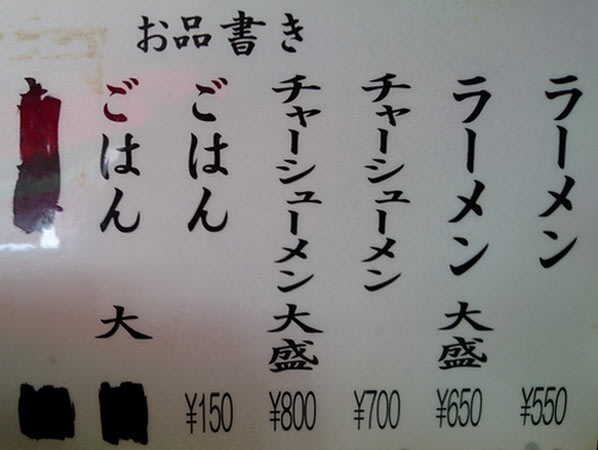 お品書き
ラーメン ¥550
ラーメン大盛 ¥650
チャーシューメン ¥700
チャーシューメン大盛 ¥800
ごはん ¥150
ごはん 大